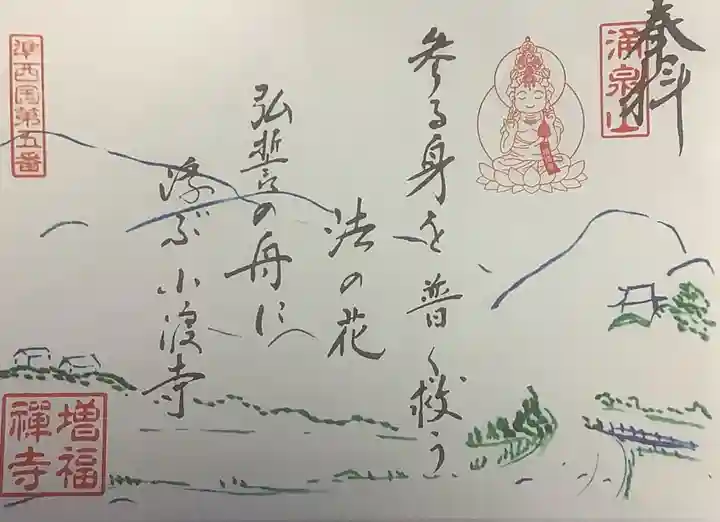 奉拝
涌泉山
参る身を普く救う
法の花
弘誓の舟に
浮ぶ小浪寺
準西国第五番
増福
禅寺